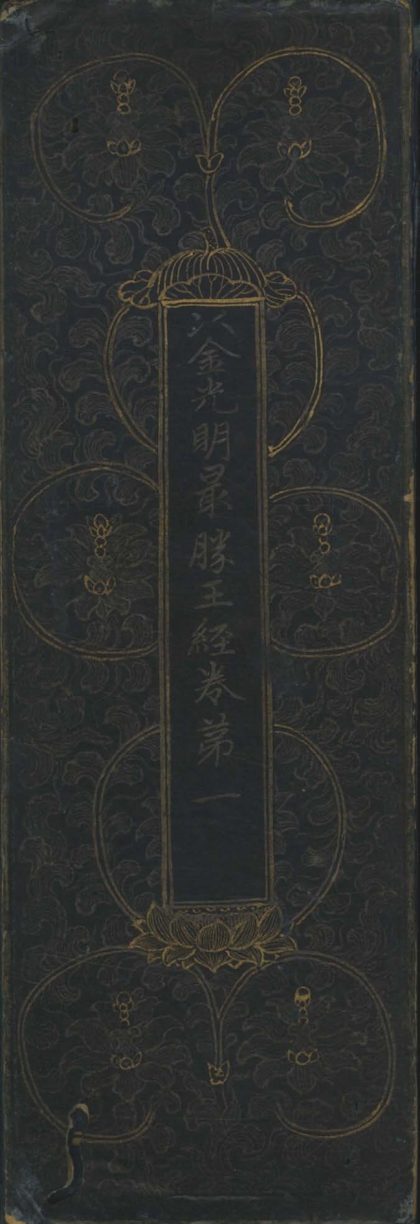 金光明最勝王經卷第一